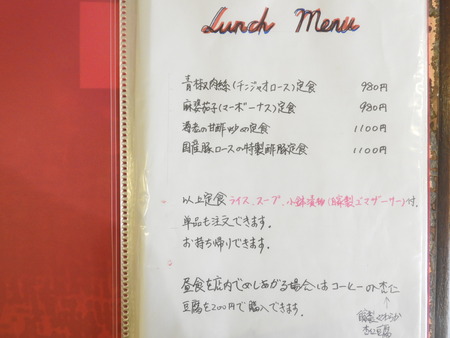 Lunch Menu
青椒肉絲(チンジャオロース)定食 980円
麻婆茄子(マーボーナス)定食 980円
海老の甘酢炒め定食 1100円
国産豚ロースの特製酢豚定食 1100円
以上定食 ライス、スープ、小鉢漬物(自家製ゴマザーサイ)付、
単品も注文できます。
お持ち帰りできます。
昼食を店内でめしあがる場合はコーヒーか杏仁
豆腐を200円で購入できます。
自家製やわらか
杏仁豆腐